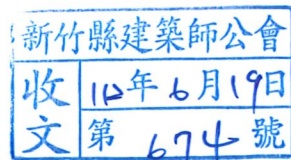 新竹縣建築師公會
收文
112年6月19日
第 674 號